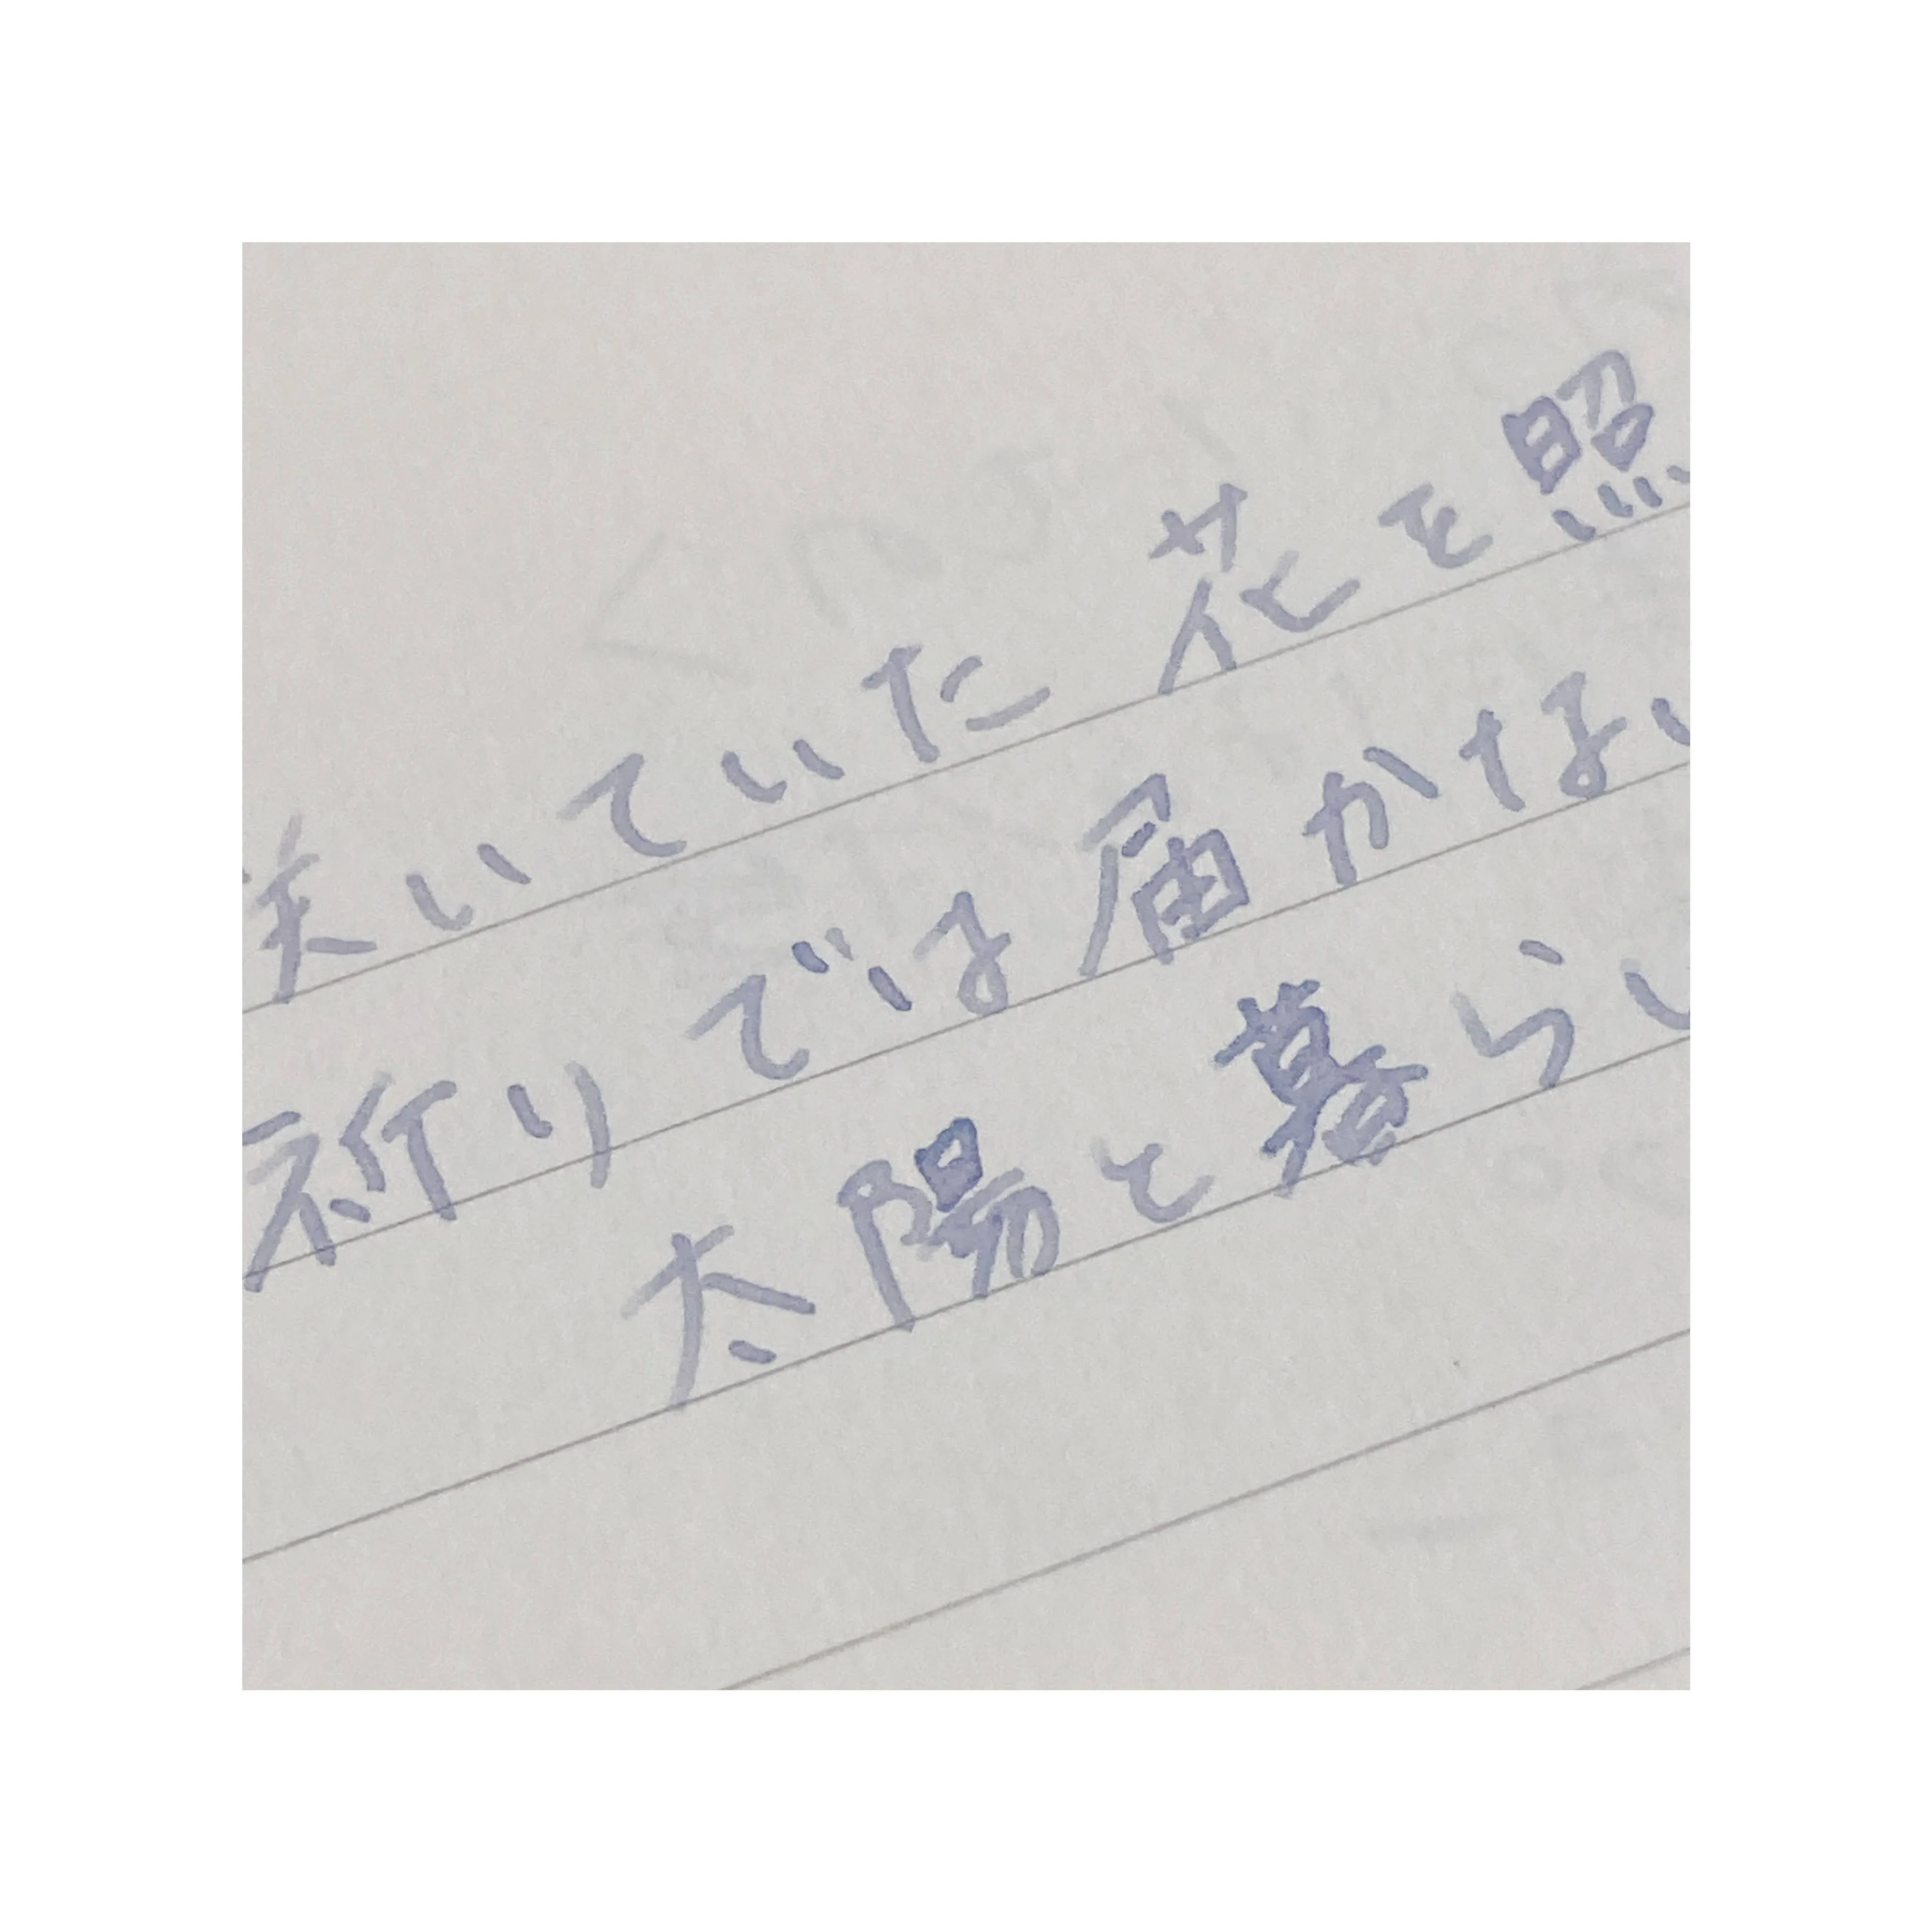 咲いていた花を照
祈りでは届かない
太陽と暮らし